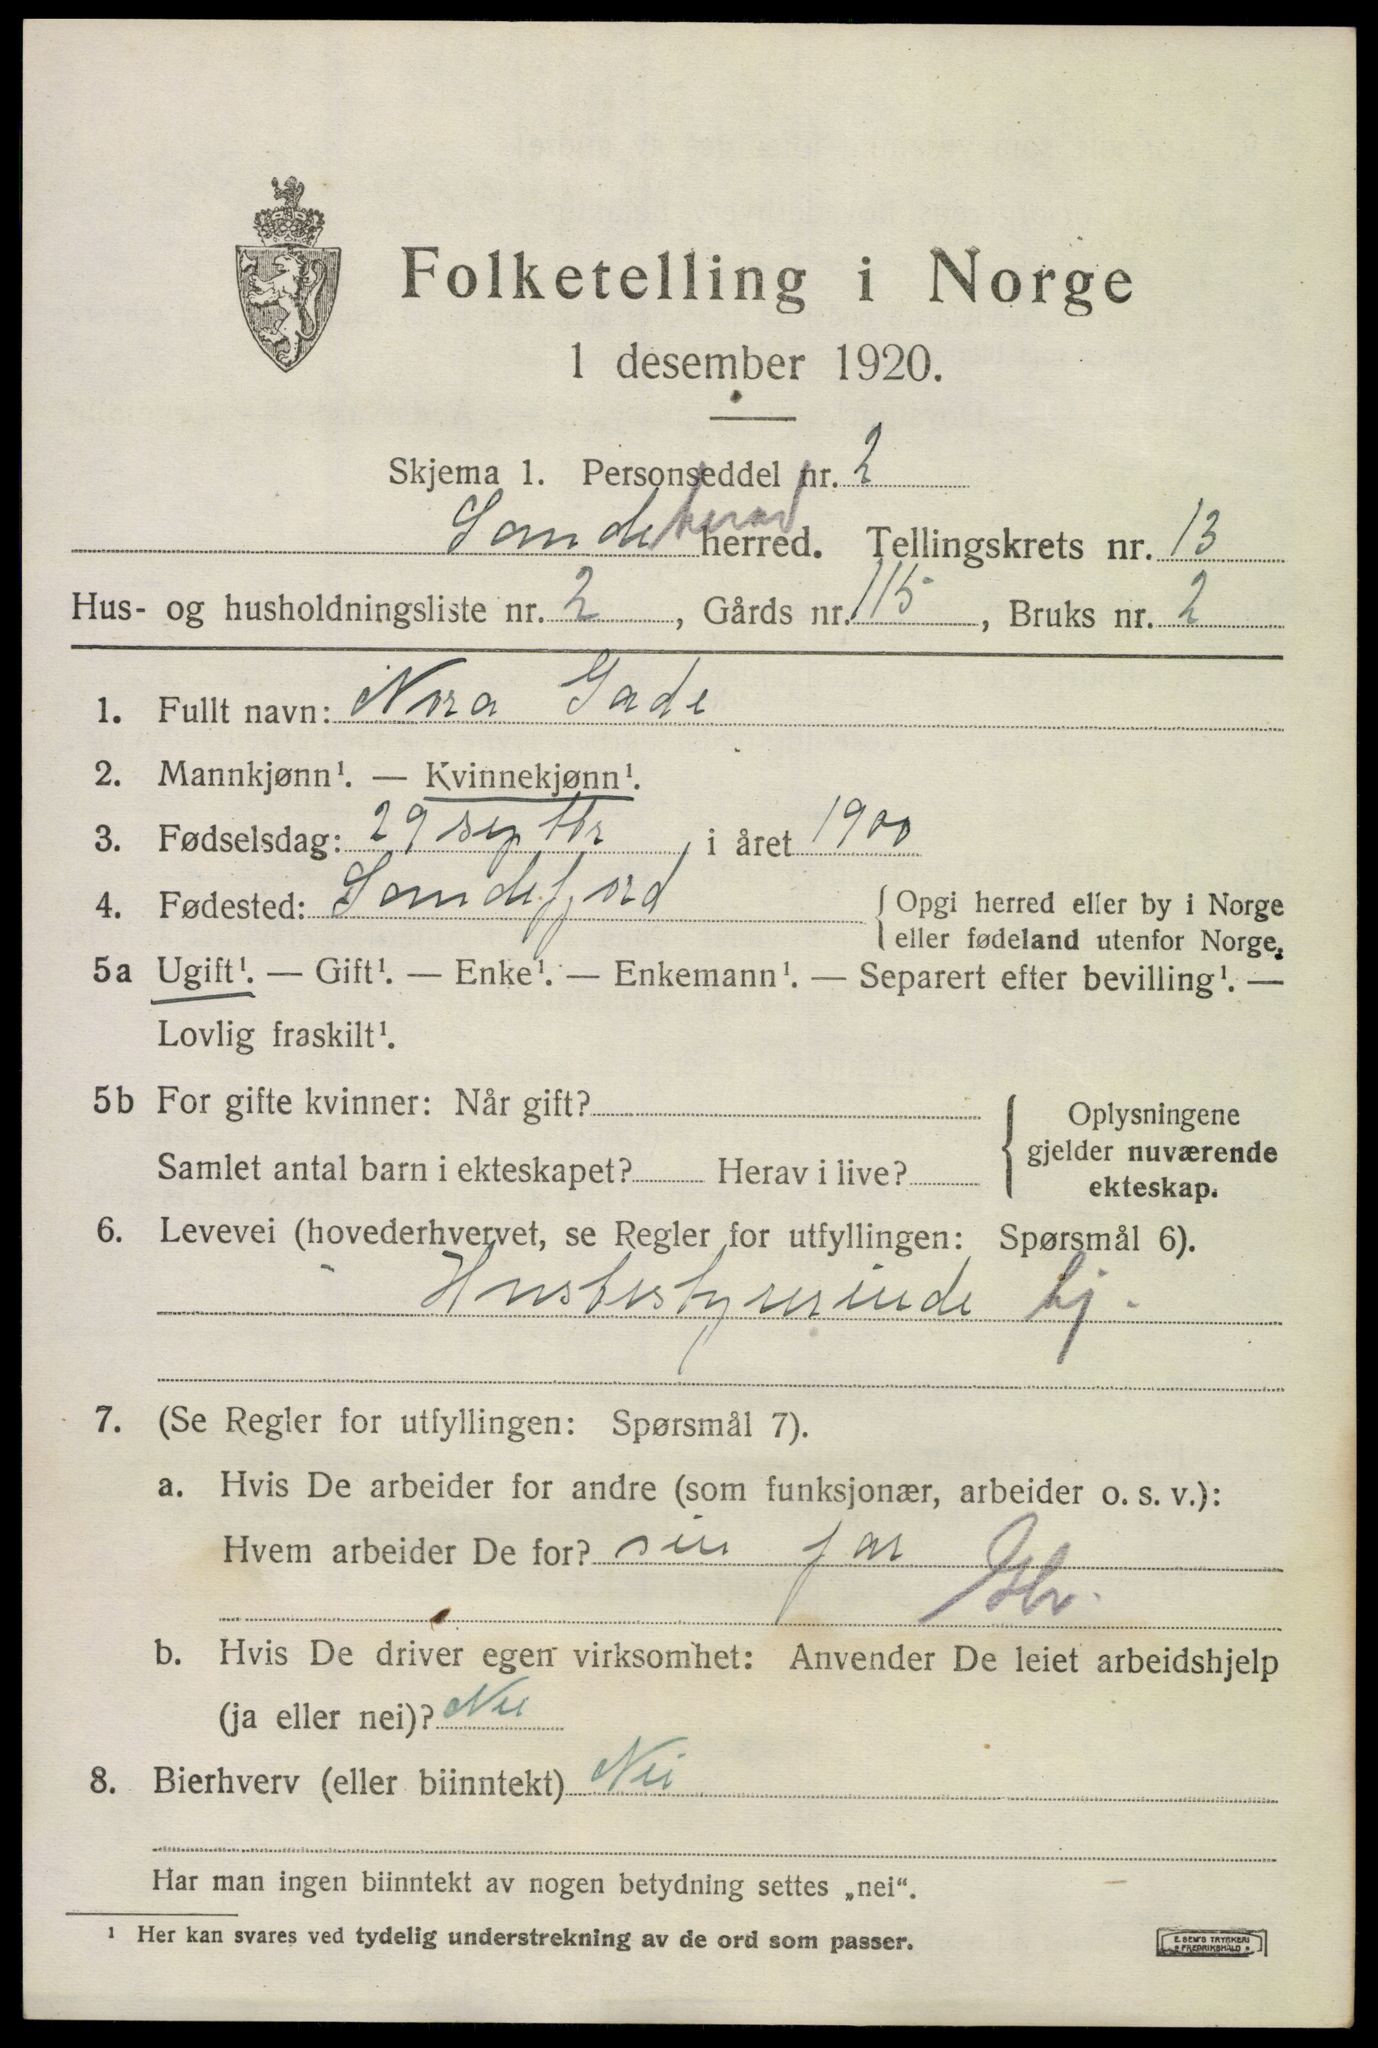 Folketelling i Norge
1 desember 1920.
Skjema 1. Personseddel nr. 2
Sandeherad herred. Tellingskrets nr. 13
Hus- og husholdningsliste nr. 2, Gårds nr. 115, Bruks nr. 2
1. Fullt navn: Nora Gade
2. Mannkjønn¹. — Kvinnekjønn¹.
3. Fødselsdag: 29 septbr i året 1900
4. Fødested: Sandefjord { Opgi herred eller by i Norge
eller fødeland utenfor Norge.
5a Ugift¹. — Gift¹. — Enke¹. — Enkemann¹. — Separert efter bevilling¹. —
Lovlig fraskilt¹.
5b For gifte kvinner: Når gift?
Samlet antal barn i ekteskapet? Herav i live?
{ Oplysningene
gjelder nuværende
ekteskap.
6. Levevei (hovederhvervet, se Regler for utfyllingen: Spørsmål 6).
Husbestyrerinde hj.
7. (Se Regler for utfyllingen: Spørsmål 7).
a. Hvis De arbeider for andre (som funksjonær, arbeider o. s. v.):
Hvem arbeider De for? sin far
b. Hvis De driver egen virksomhet: Anvender De leiet arbeidshjelp
(ja eller nei)? Nei
8. Bierhverv (eller biinntekt) Nei
Har man ingen biinntekt av nogen betydning settes „nei“.
¹ Her kan svares ved tydelig understrekning av de ord som passer.
E. SEM'S TRYKKERI
* FREDRIKSHALD *